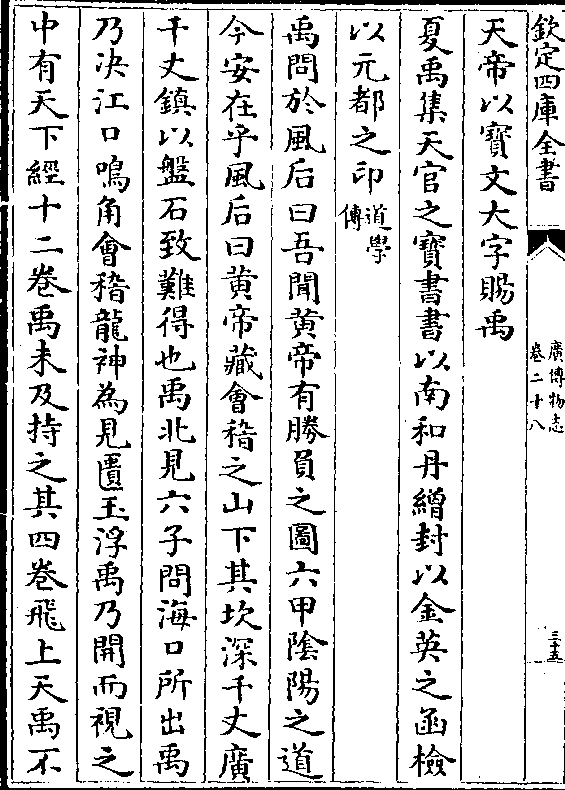 欽定四庫全書
廣博物志
卷二十八
三十五
天帝以寶文大字賜禹
夏禹集天官之寶書書以南和丹繒封以金英之函檢
以元都之印道學傳
禹問於風后曰吾聞黄帝有勝負之圖六甲陰陽之道
今安在乎風后曰黄帝藏會稽之山下其坎深千丈廣
千丈鎮以盤石致難得也禹北見六子問海口所出禹
乃决江口鳴角會稽龍神為見匱玉浮禹乃開而視之
中有天下經十二卷禹未及持之其四卷飛上天禹不